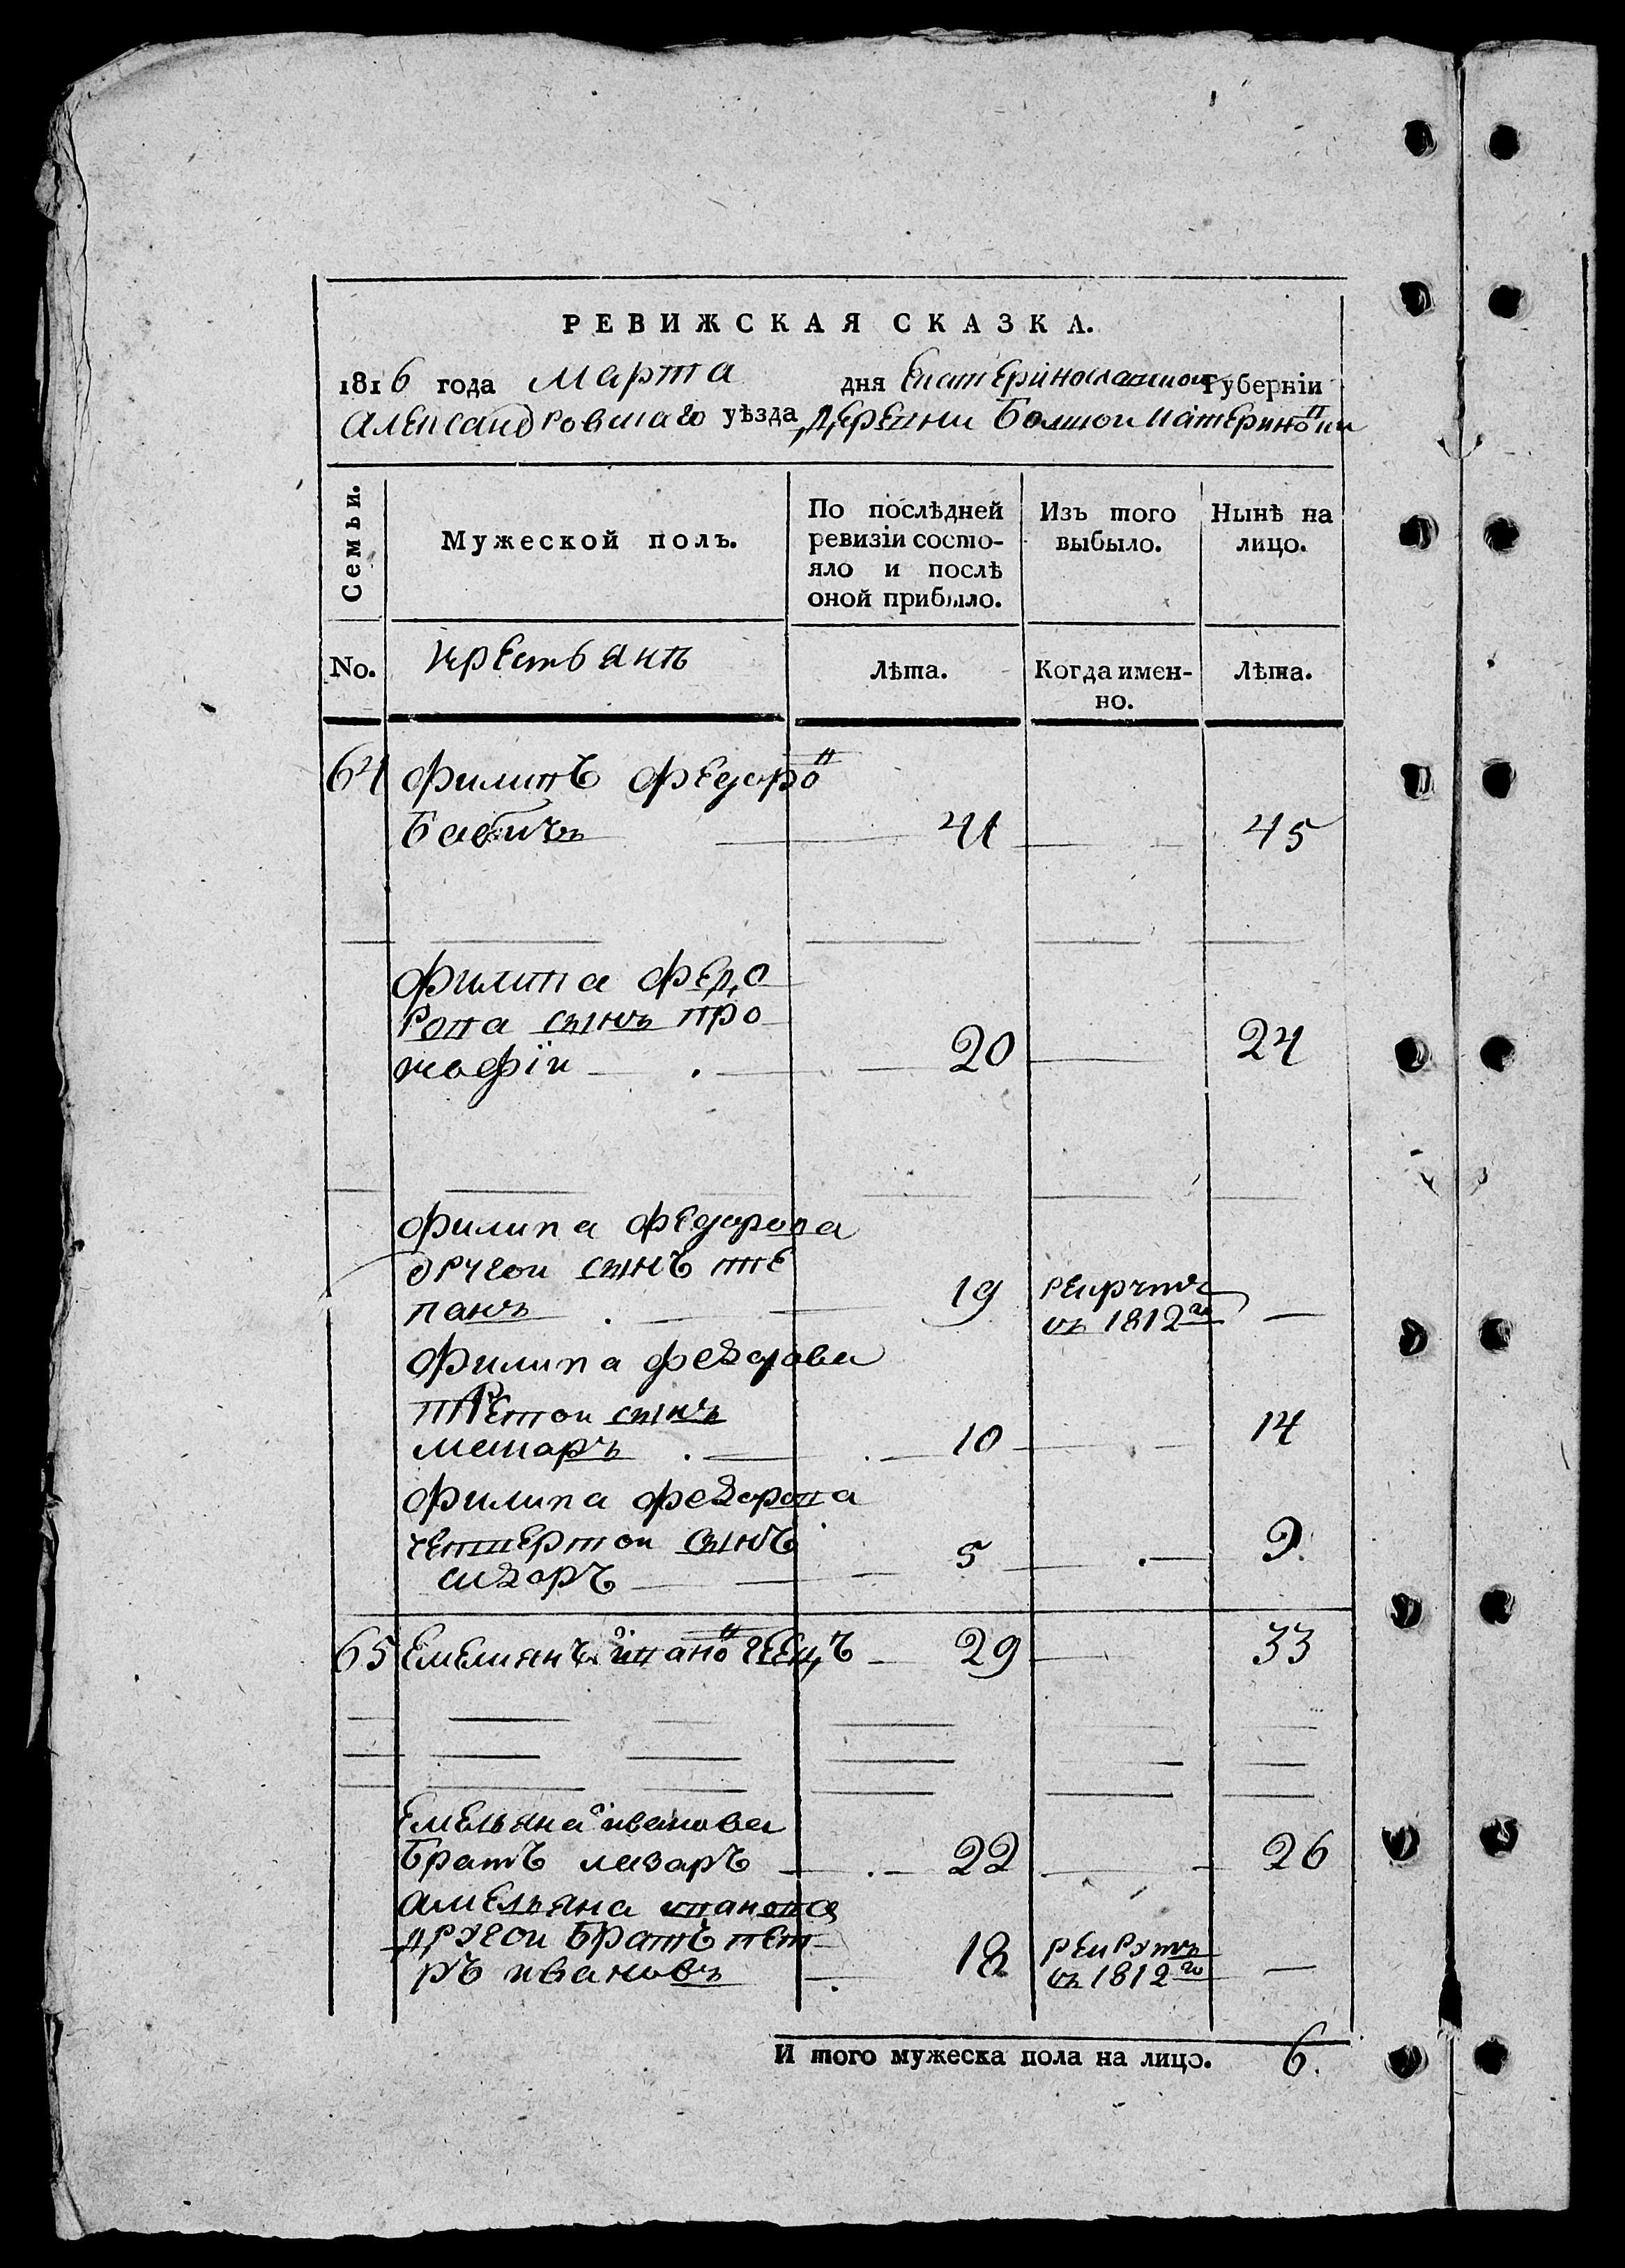 РЕВИЖСКАЯ СКАЗКА.
1816 года Марта дня Екатеринославской Губерніи
Александровскаго уѣзда, Деревни Болшой Катериновки
Семьи.
Мужеской полъ.
По послѣдней ревизіи состо-
яло и послѣ
оной прибыло.
Изъ того
выбыло.
Нынѣ на
лицо.
No.
крестьянъ
Лѣта.
Когда имен-
но.
Лѣта.
64 Филипъ Федоров
Бабичъ 41 45
Филипа Федо
рова сынъ Про
кофій 20 24
Филипа Федорова
другой сынъ
панъ 19 рекрутъ
въ 1812го —
Филипа Федорова
третой сынъ
Макаръ 10 14
Филипа Федорова
четвертой сынъ
Сидоръ 5 9.
65 Емелиянъ Иванов 29 33
Емельяна Иванова
Братъ Лазаръ 22 26
Амельяна Иванова
другой Братъ Пет
ръ Ивановъ 18 рекрутъ
въ 1812го —
И того мужеска пола на лицо. 6.